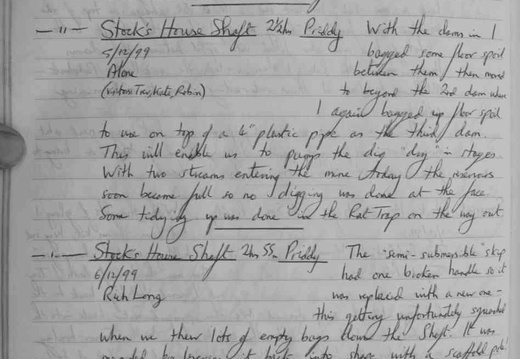 — " — Stock's House Shaft 2¼hrs Priddy With the dams in I
5/12/99 bagged some floor spoil
Alone between them, then moved
(Visitors: Trev, Kate, Robin) to beyond the 2nd dam where
I again bagged up floor spoil
to use on top of a 4" plastic pipe as the third dam.
This will enable us to pump the dig "dry" in stages.
With two streams entering the mine today the reservoirs
soon became full so no digging was done at the face.
Some tidying up was done in the Rat Trap on the way out.
— " — Stock's House Shaft 2hrs 55m Priddy The "semi-submersible" skip
6/12/99 had one broken handle so it
Rich Long was replaced with a new one -
this getting unfortunately squashed
when we threw lots of empty bags down the Shaft. It was
back into shape with a scaffold pole